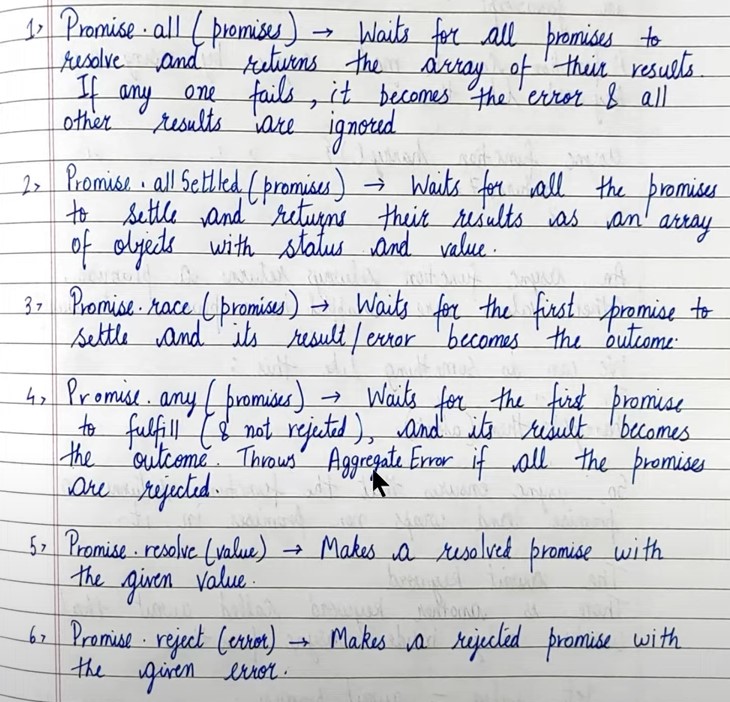 1> Promise.all (promises) → Waits for all promises to
resolve and returns the array of their results.
If any one fails, it becomes the error & all
other results are ignored
2> Promise.allSettled (promises) → Waits for all the promises
to settle and returns their results as an array
of objects with status and value.
3> Promise.race (promises) → Waits for the first promise to
settle and its result/error becomes the outcome.
4> Promise.any (promises) → Waits for the first promise
to fulfill (& not rejected), and its result becomes
the outcome. Throws Aggregate Error if all the promises
are rejected.
5> Promise.resolve (value) → Makes a resolved promise with
the given value.
6> Promise.reject (error) → Makes a rejected promise with
the given error.